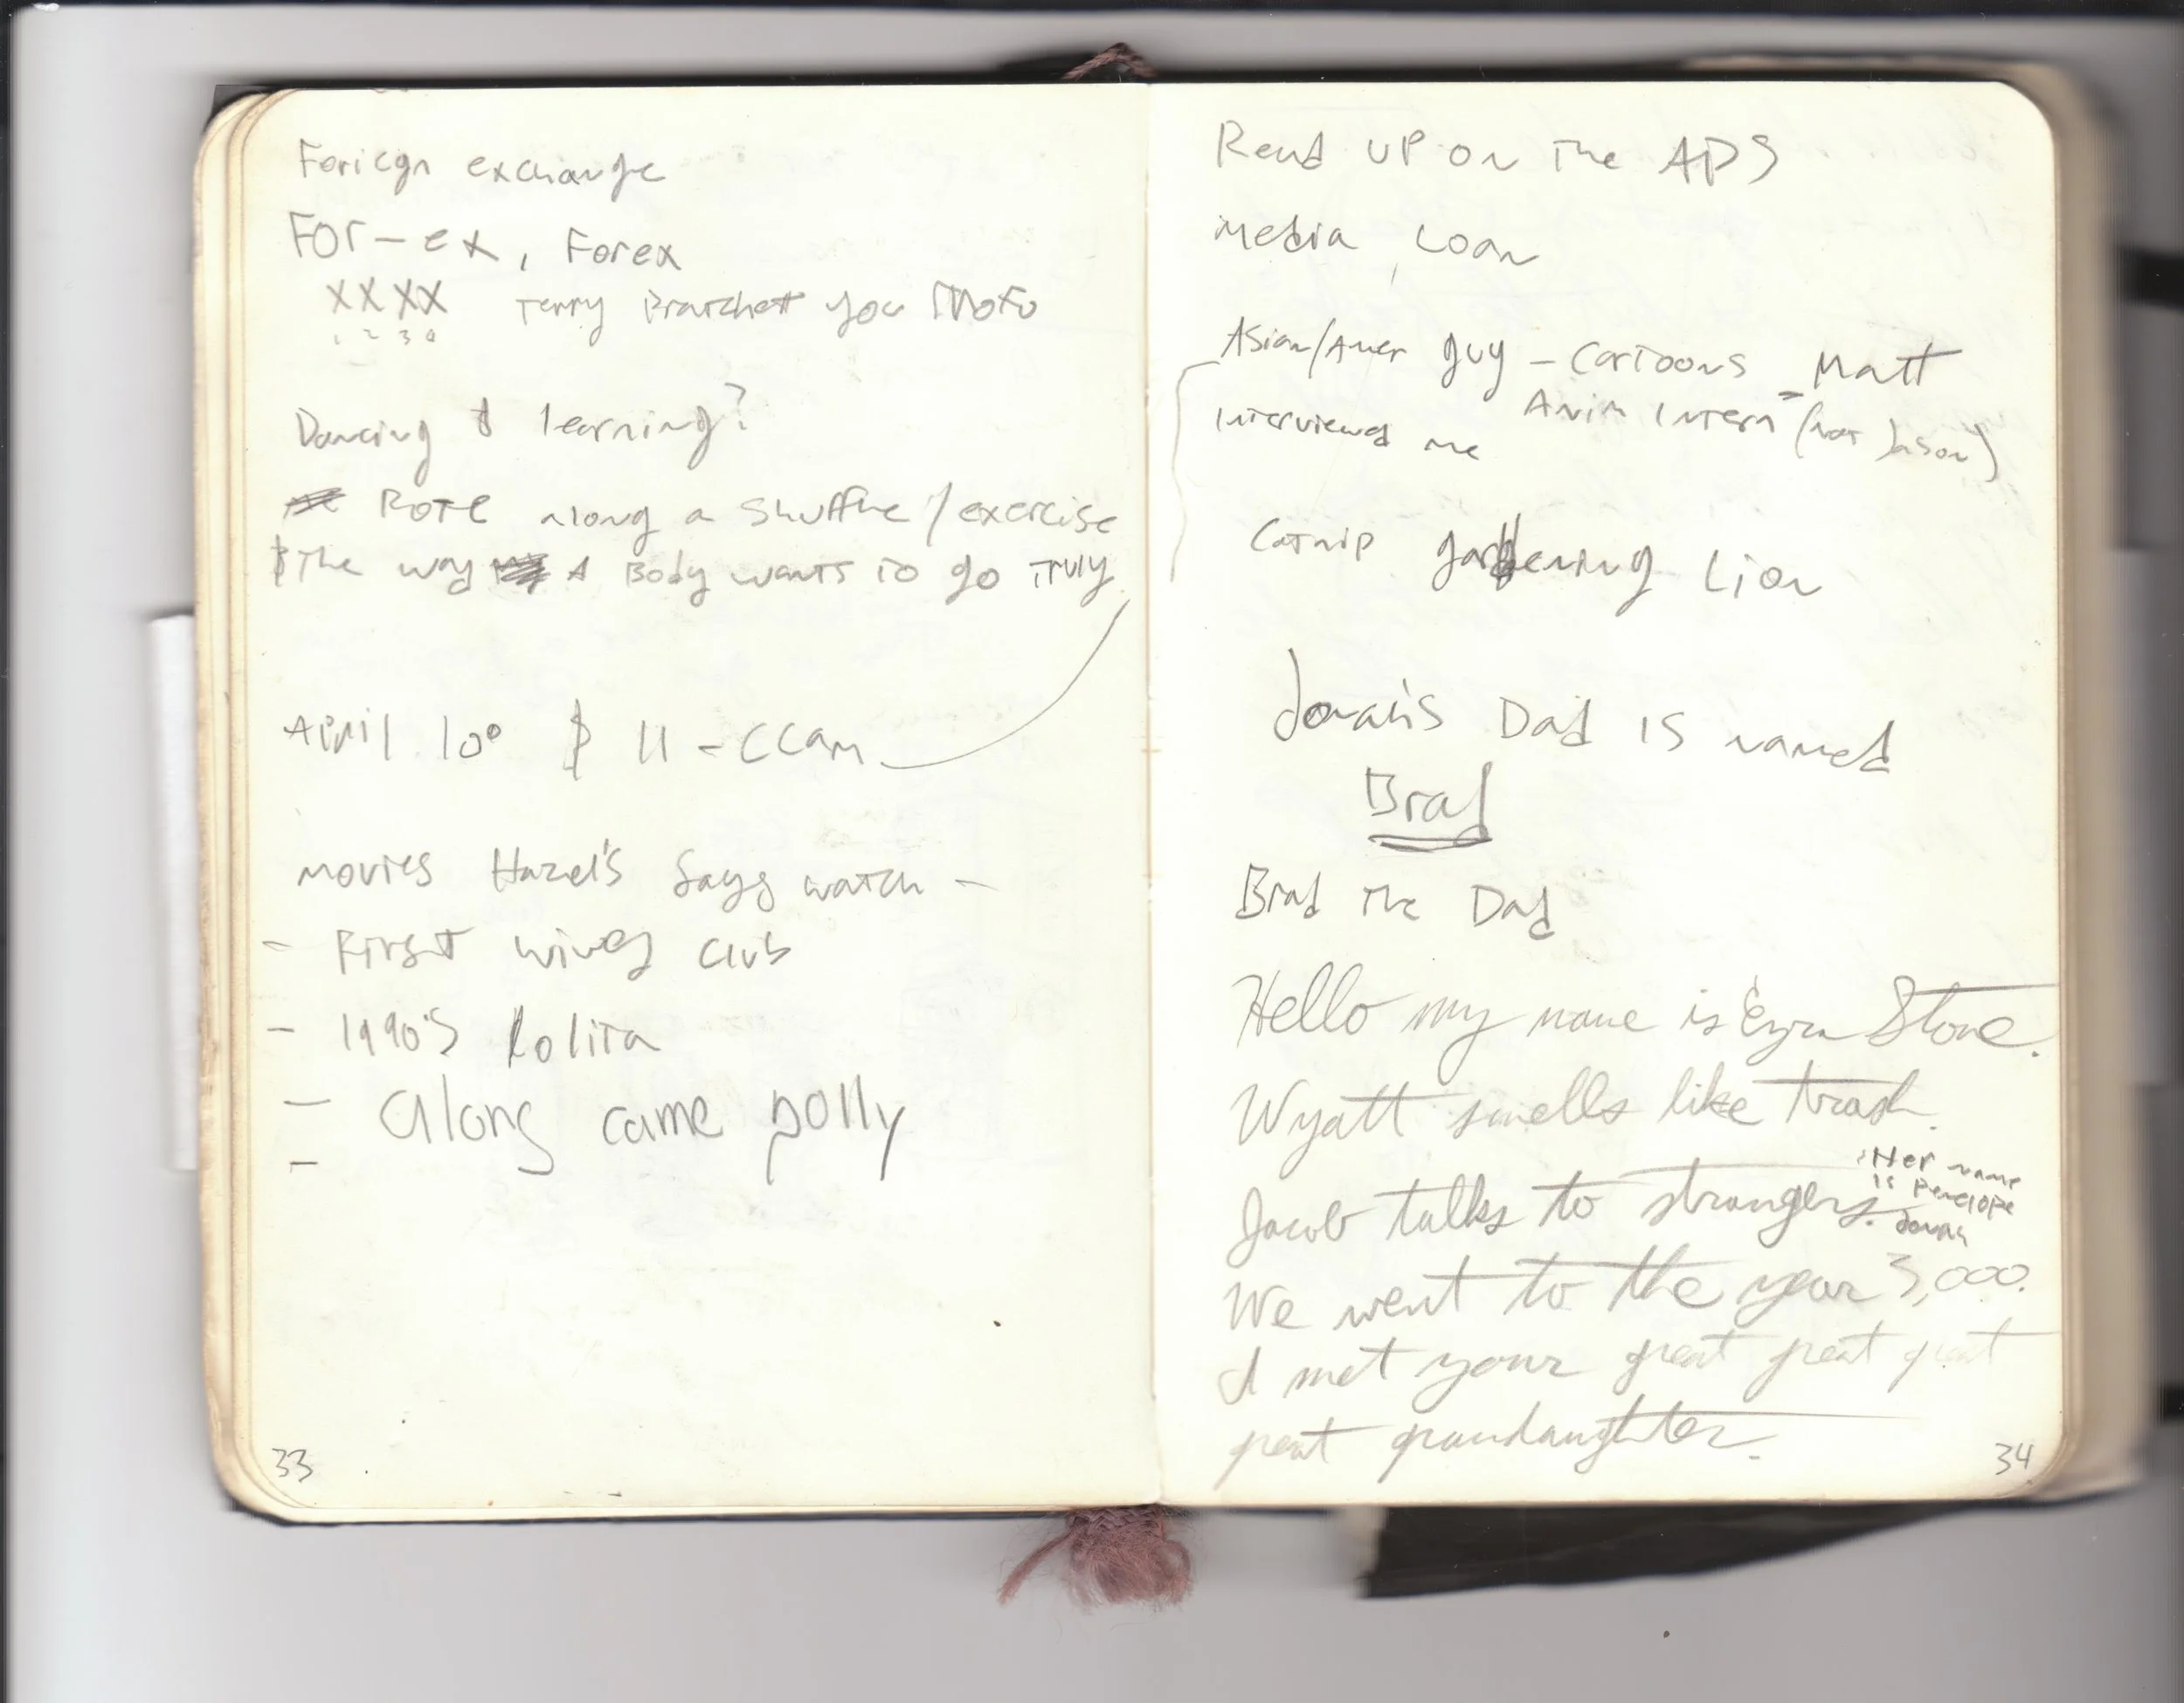 Foriegn exchange
For-ex, Forex
XXXX Terry Pratchett you Mofo
1 2 3 4
Dancing & learning?
Rote along a shuffle/exercise
& The way A Body wants to go Truly
April 10 & 11 - CCAM
movies Hazel's says watch -
- First wives club
- 1990's Lolita
- Along came polly
-
33
Read up on the ADS
Media Loan
Asian/Amer guy - Cartoons - Matt
Interviewed me Anim Intern (not Jason)
Catnip gardening Lion
Jonah's Dad is named
Brad
Brad the Dad
Hello my name is Ezra Stone.
Wyatt smells like trash.
Jacob talks to strangers.
Her name
is Penelope
Jonah
We went to the year 3,000.
I met your great great great
great grandaughter.
34